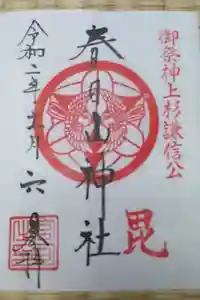 御祭神上杉謙信公
春日山神社
毘
令和二年 月六日奉拝